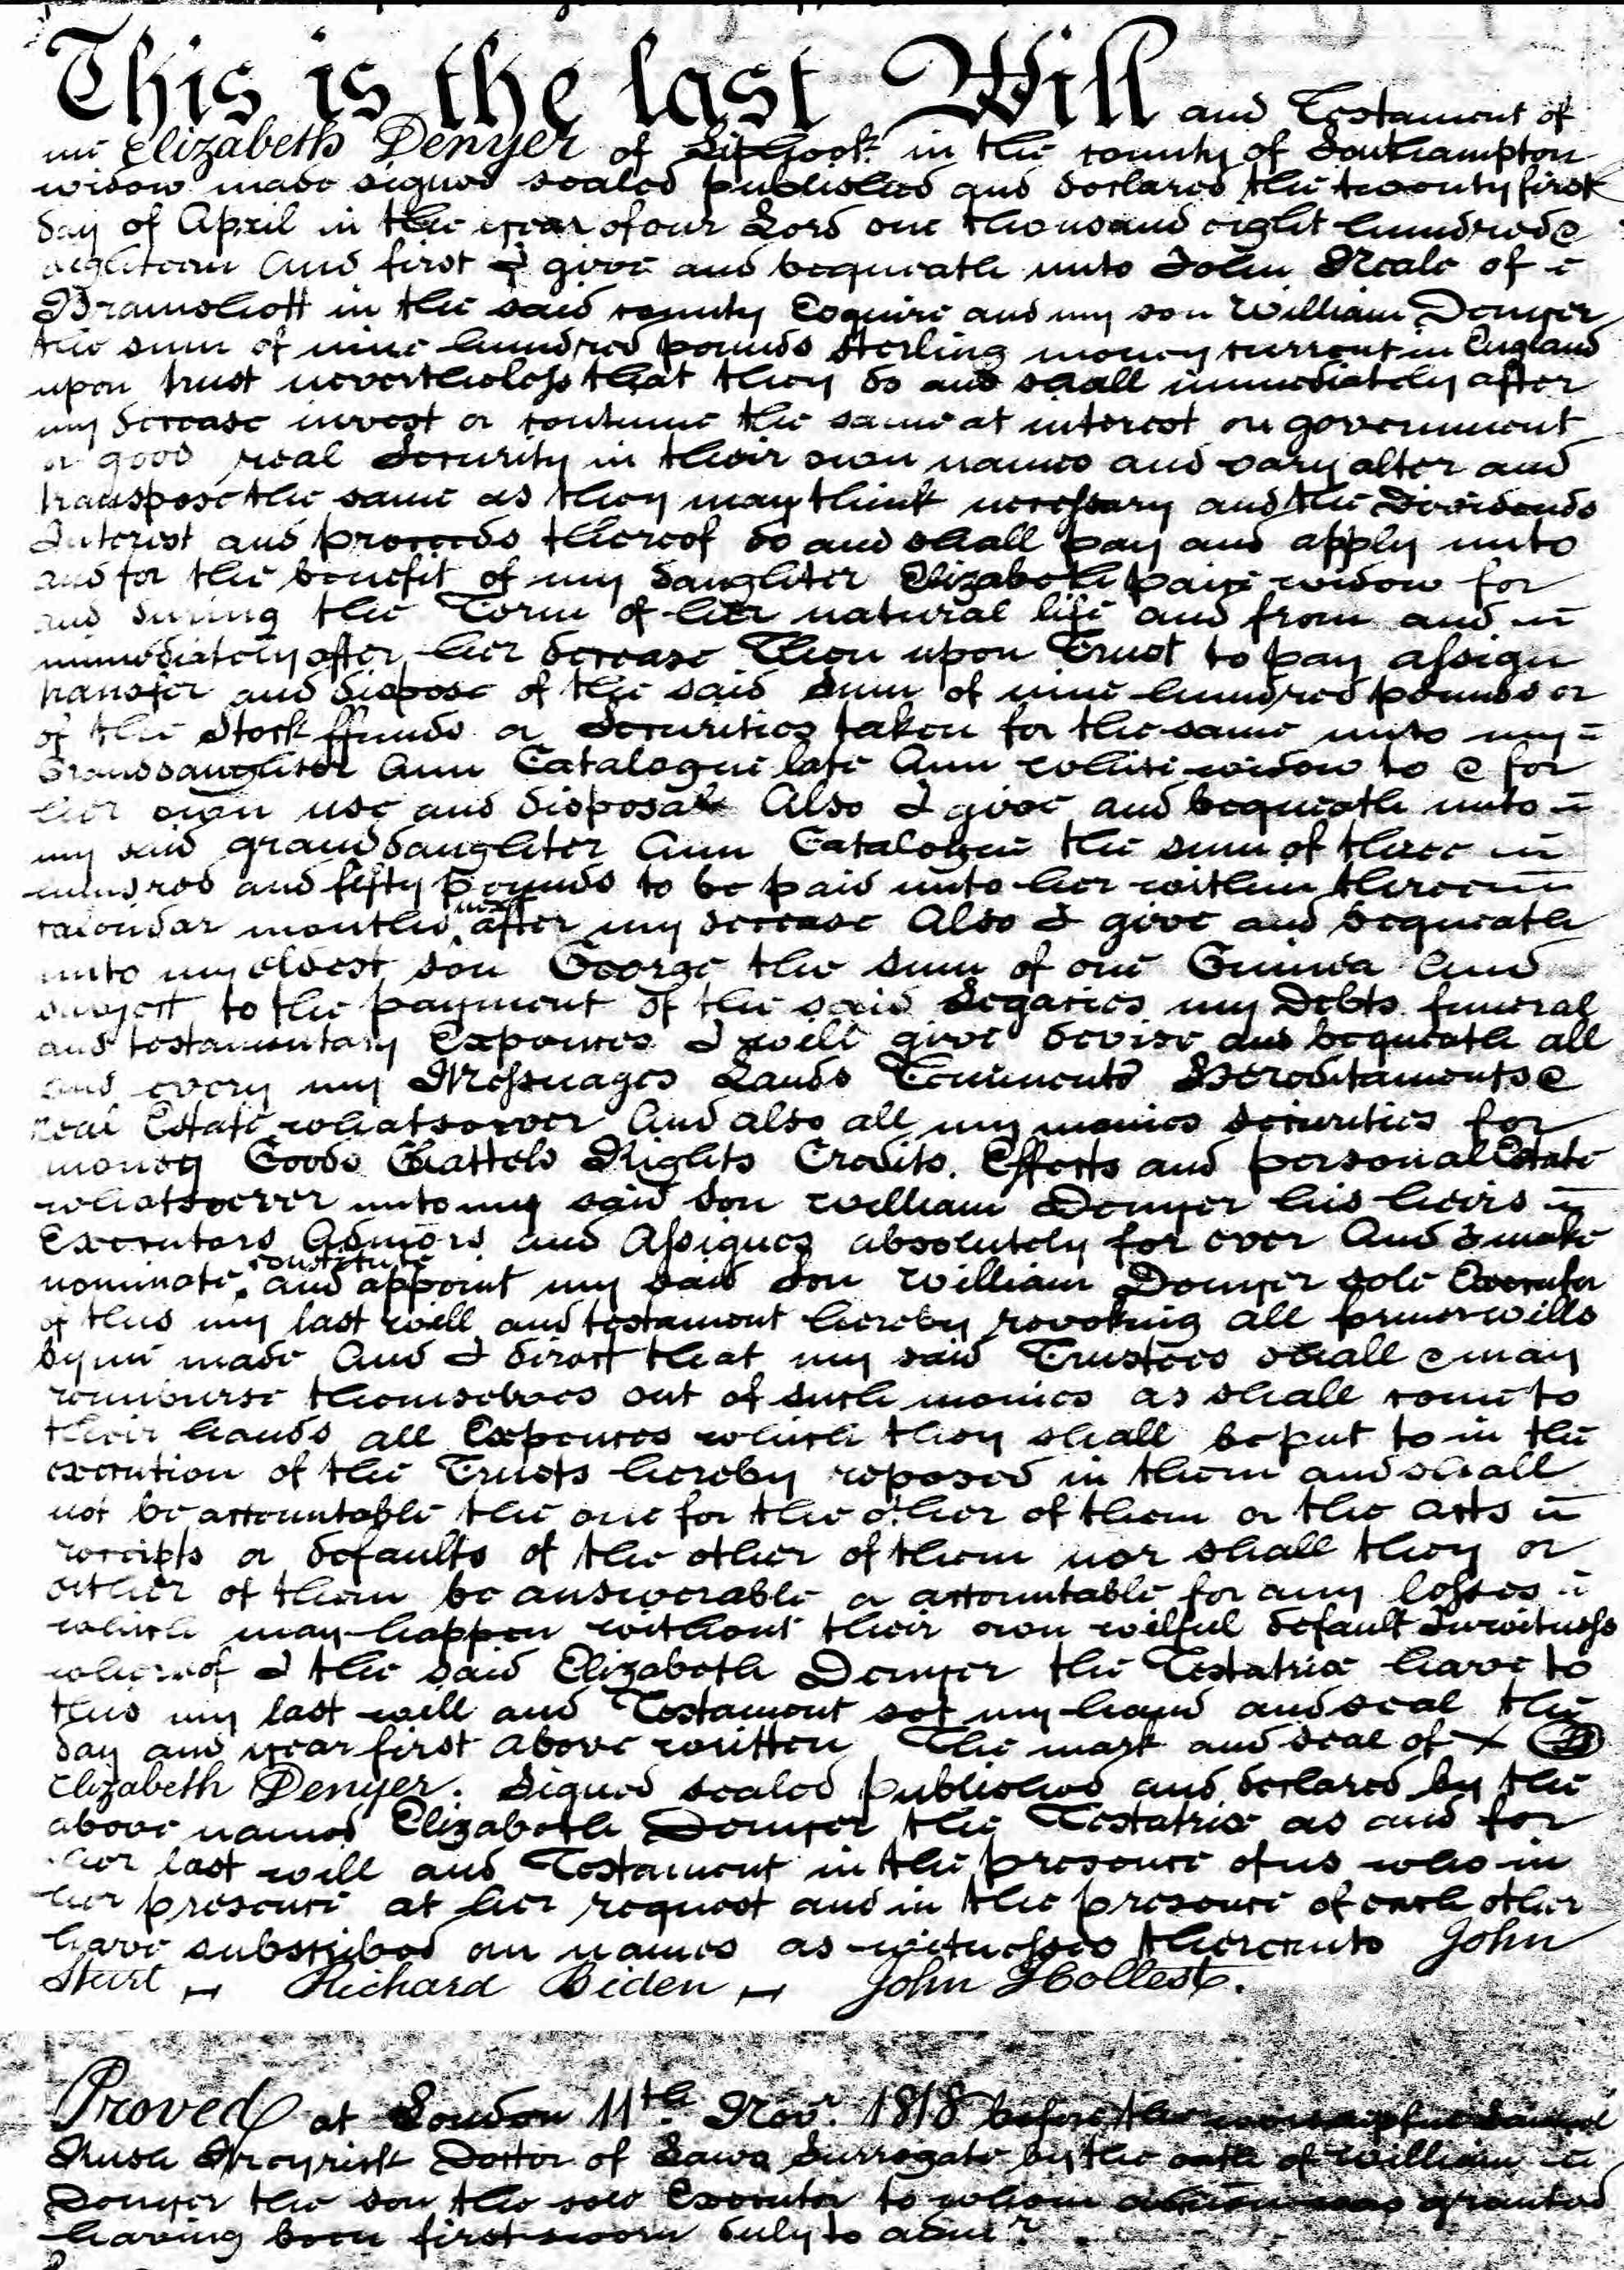 This is the last Will and Testament of
me Elizabeth Denyer of Liphook in the county of Southampton
widow made signed sealed published and declared the twenty first
day of April in the year of our Lord one thousand eight hundred &
eighteen And first I give and bequeath unto John Neale of
Bramshott in the said county Esquire and my son William Denyer
the sum of nine hundred pounds sterling money current in England
upon trust nevertheless that they do and shall immediately after
my decease invest or continue the same at interest on government
or good real Security in their own names and vary alter and
transpose the same as they may think necessary and the Dividends
Interest and proceeds thereof do and shall pay and apply unto
and for the benefit of my daughter Elizabeth widow for
and during the Term of her natural life and from and
immediately after her decease Then upon Trust to pay assign
transfer and dispose of the said sum of nine hundred pounds or
of the Stock ffunds or Securities taken for the same unto my
Granddaughter Ann Catalogue late Ann White widow to & for
her own use and disposal Also I give and bequeath unto
my said granddaughter Ann Catalogue the sum of three
hundred and fifty pounds to be paid unto her within three
calendar months next after my decease Also I give and bequeath
unto my eldest son George the sum of one Guinea And
subject to the payment of the said Legacies my Debts funeral
and testamentary Expences I will give devise and bequeath all
and every my Messuages Lands Tenements Hereditaments &
real Estate whatsoever And also all my monies securities for
money Goods Chattels Rights Credits Effects and personal Estate
whatsoever unto my said son William Denyer his heirs
Executors Admors and Assignes absolutely for ever And I make
nominate constitute and appoint my said son William Denyer sole Executor
of this my last will and testament hereby revoking all former wills
by me made And I direct that my said Trustees shall & may
reimburse themselves out of such monies as shall come to
their hands all Expences which they shall be put to in the
execution of the Trusts hereby reposed in them and shall
not be accountable the one for the other of them or the acts
receipts or defaults of the other of them nor shall they or
either of them be answerable or accountable for any losses
which may happen without their own wilful default In witness
whereof I the said Elizabeth Denyer the Testatrix have to
this my last will and Testament set my hand and seal the
day and year first above written The mark and seal of X
Elizabeth Denyer. Signed sealed published and declared by the
above named Elizabeth Denyer the Testatrix as and for
her last will and Testament in the presence of us who in
her presence at her request and in the presence of each other
have subscribed our names as witnesses thereunto John
Sturt Richard Biden John Hollest.
Proved at London 11th Novr. 1818 before the worshipful Samuel
Rush Meyrick Doctor of Laws Surrogate by the oath of William
Denyer the son the sole Executor to whom admon was granted
having been first sworn duly to admr.